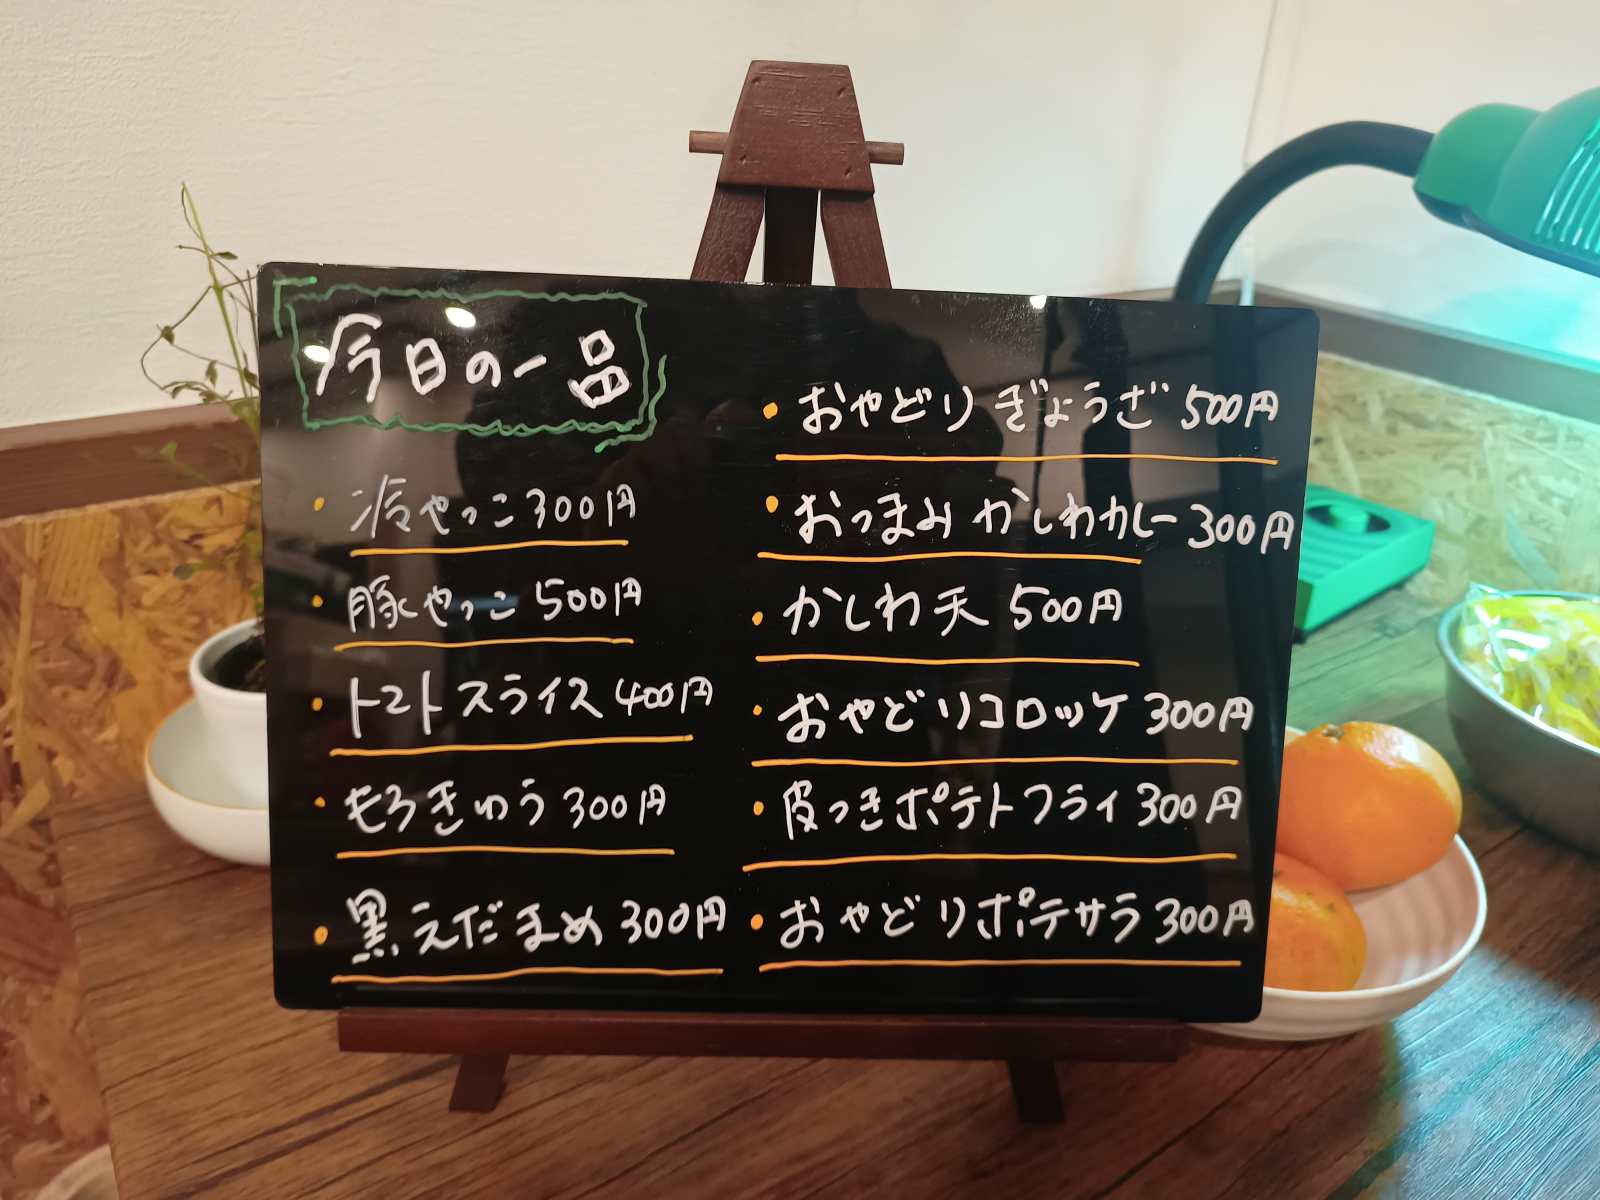 今日の一品
・冷やっこ 300円
・豚やっこ 500円
・トマトスライス 400円
・もろきゅう 300円
・黒えだまめ 300円
・おやどり ぎょうざ 500円
・おつまみ かしわカレー 300円
・かしわ天 500円
・おやどりコロッケ 300円
・皮つきポテトフライ 300円
・おやどりポテサラ 300円